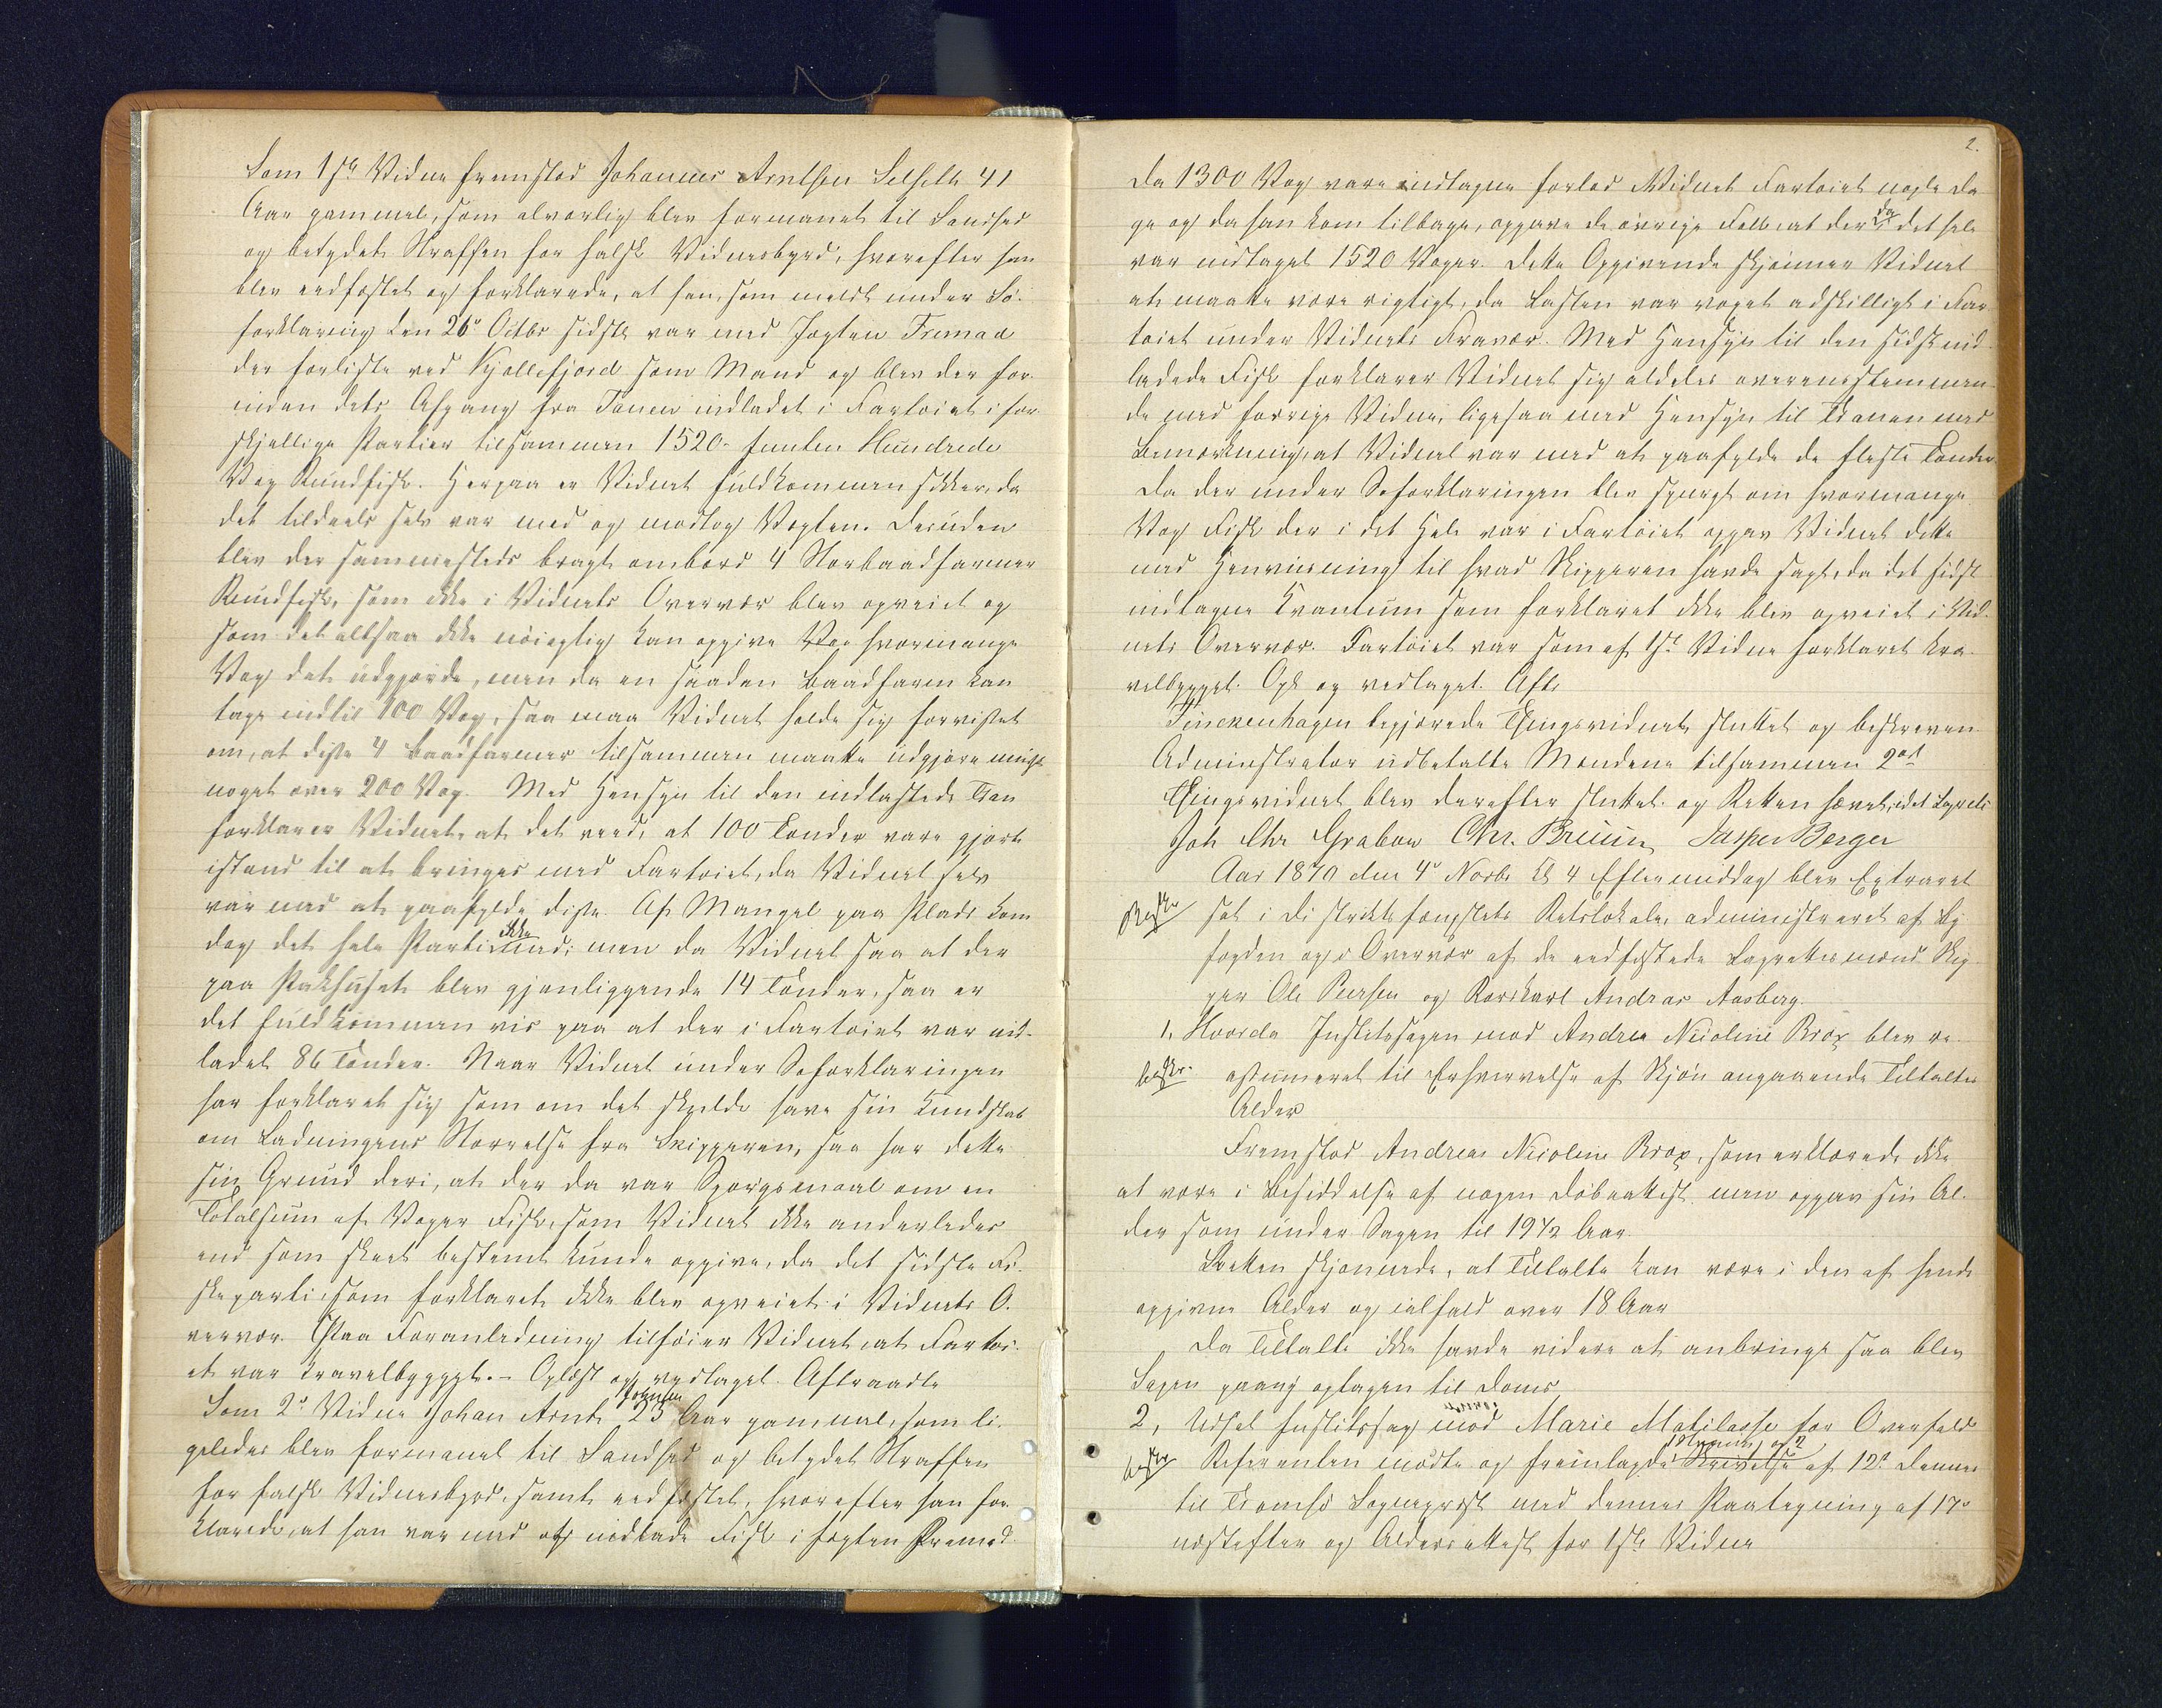 Som 1ste Vidne fremstod Johannes Arntsen Selseth 41
Aar gammel, som alvorlig blev formanet til Sandhed
og betydet Straffen for falsk Vidnesbyrd, hvorefter han
blev eedfæstet og forklarede, at han, som meldt under Sø-
forklaring den 26de Octbr sidste var med Jagten Fremad
der forliste ved Kjøllefjord som Mand og blev der for-
inden dets Afgang fra Tanen indladet i Fartøiet i for-
skjellige Partier tilsammen 1520 - femten Hundrede
Vog Rundfisk. Herpaa er Vidnet fuldkommen sikker, da
det tildeels selv var med og modtog Vægten. Desuden
blev der sammesteds bragt ombord 4 Storbaadfarmer
Rundfisk, som ikke i Vidnets Overvær blev opveiet og
som det altsaa ikke nøiagtig kan opgive hvormange
Vog det udgjorde, men da en saadan Baadfarm kan
tage indtil 100 Vog, saa maa Vidnet holde sig forvisset
om, at disse 4 Baadfarmer tilsammen maatte udgjøre
noget over 200 Vog. Med Hensyn til den indlastede Tran
forklarer Vidnet, at det veed, at 100 Tønder vare gjort
istand til at bringes med Fartøiet, da Vidnet selv
var med at paafylde disse. Af Mangel paa Plads kom
dog det hele Parti ikke med; men da Vidnet saa at der
paa Pakhuset blev gjenliggende 14 Tønder, saa er
det fuldkommen vis paa at der i Fartøiet var ind-
ladet 86 Tønder. Naar Vidnet under Søforklaringen
har forklaret sig som om det skulde have sin Kundskab
om Ladningens Størrelse fra Skipperen, saa har dette
sin Grund deri, at der da var Spørgsmaal om en
Totalsum af Voger Fisk, som Vidnet ikke anderledes
end som skeet bestemt kunde opgive, da det sidste Fi-
skeparti som forklaret ikke blev opveiet i Vidnets O-
vervær. Paa Foranledning tilføier Vidnet at Fartøi-
et var kravelbygget. - Oplæst og vedtaget. Aftraadte
Som 2det Vidne Johan Arnt Johnsen 23 Aar gammel, som li-
geledes blev formanet til Sandhed og betydet Straffen
for falsk Vidnesbyrd, samt eedfæstet, hvorefter han for-
klarede, at han var med at indlade Fisk i Jagten Fremad.
2.
Da 1300 Vog vare indtagne forlod Vidnet Fartøiet nogle Da-
ge og da han kom tilbage, opgave de øvrige Folk, at der da i det hele
var indtaget 1520 Voger. Dette Opgivende skjønner Vidnet
at maatte være rigtigt, da Lasten var voxet adskilligt i Far-
tøiet under Vidnets Fravær. Med Hensyn til den sidst ind-
ladede Fisk forklarer Vidnet sig aldeles overensstemmen-
de med forrige Vidne, ligesaa med Hensyn til Tranen med
Bemærkning, at Vidnet var med at paafylde de fleste Tønder.
Da der under Søforklaringen blev spurgt om hvormange
Vog Fisk der i det Hele var i Fartøiet opgav Vidnet dette
med Henviisning til hvad Skipperen havde sagt, da det sidst
indtagne Kvantum som forklaret ikke blev opveiet i Vid-
nets Overvær. Fartøiet var som af 1ste Vidne forklaret kra-
velbygget. Opl. og vedtaget. Aftr.
Finckenhagen begjærede Thingsvidnet sluttet og beskreven
Administrator udbetalte Mændene tilsammen 2 ort
Thingsvidnet blev derefter sluttet og Retten hævet,
Joh Chr Grabow Chr. Bruun Jasper Berger
Aar 1870 den 4de Novbr Kl 4 Eftermiddag blev Extraret
sat i Distriktsfængslets Retslokale, administreret af By-
fogden og i Overvær af de eedfæstede Lagrettesmænd Skip-
per Ole Peersen og Røiskarl Andreas Aasberg.
1. Hvorda Justitssagen mod Andrea Nicoline Brox blev re-
beskr.
assumeret til Erhvervelse af Skjøn angaaende Tiltaltes
Alder
Fremstod Andrea Nicoline Brox, som erklærede ikke
at være i Besiddelse af nogen Døbeattest, men opgav sin Al-
der som under Sagen til 19 1/2 Aar.
Retten skjønnede, at Tiltalte kan være i den af hende
opgivne Alder og ialfald over 18 Aar
Da Tiltalte ikke havde videre at anbringe saa blev
Sagen paany optagen til Doms
2, Udsat Justitssag mod Marie Matilasse for Overfald
beskr
Referenten mødte og fremlagde Skrivelse af 12te dennes
til Tromsø Sognepræst med dennes Paategning af 17de
næstefter og Aldersattest for 1ste Vidne